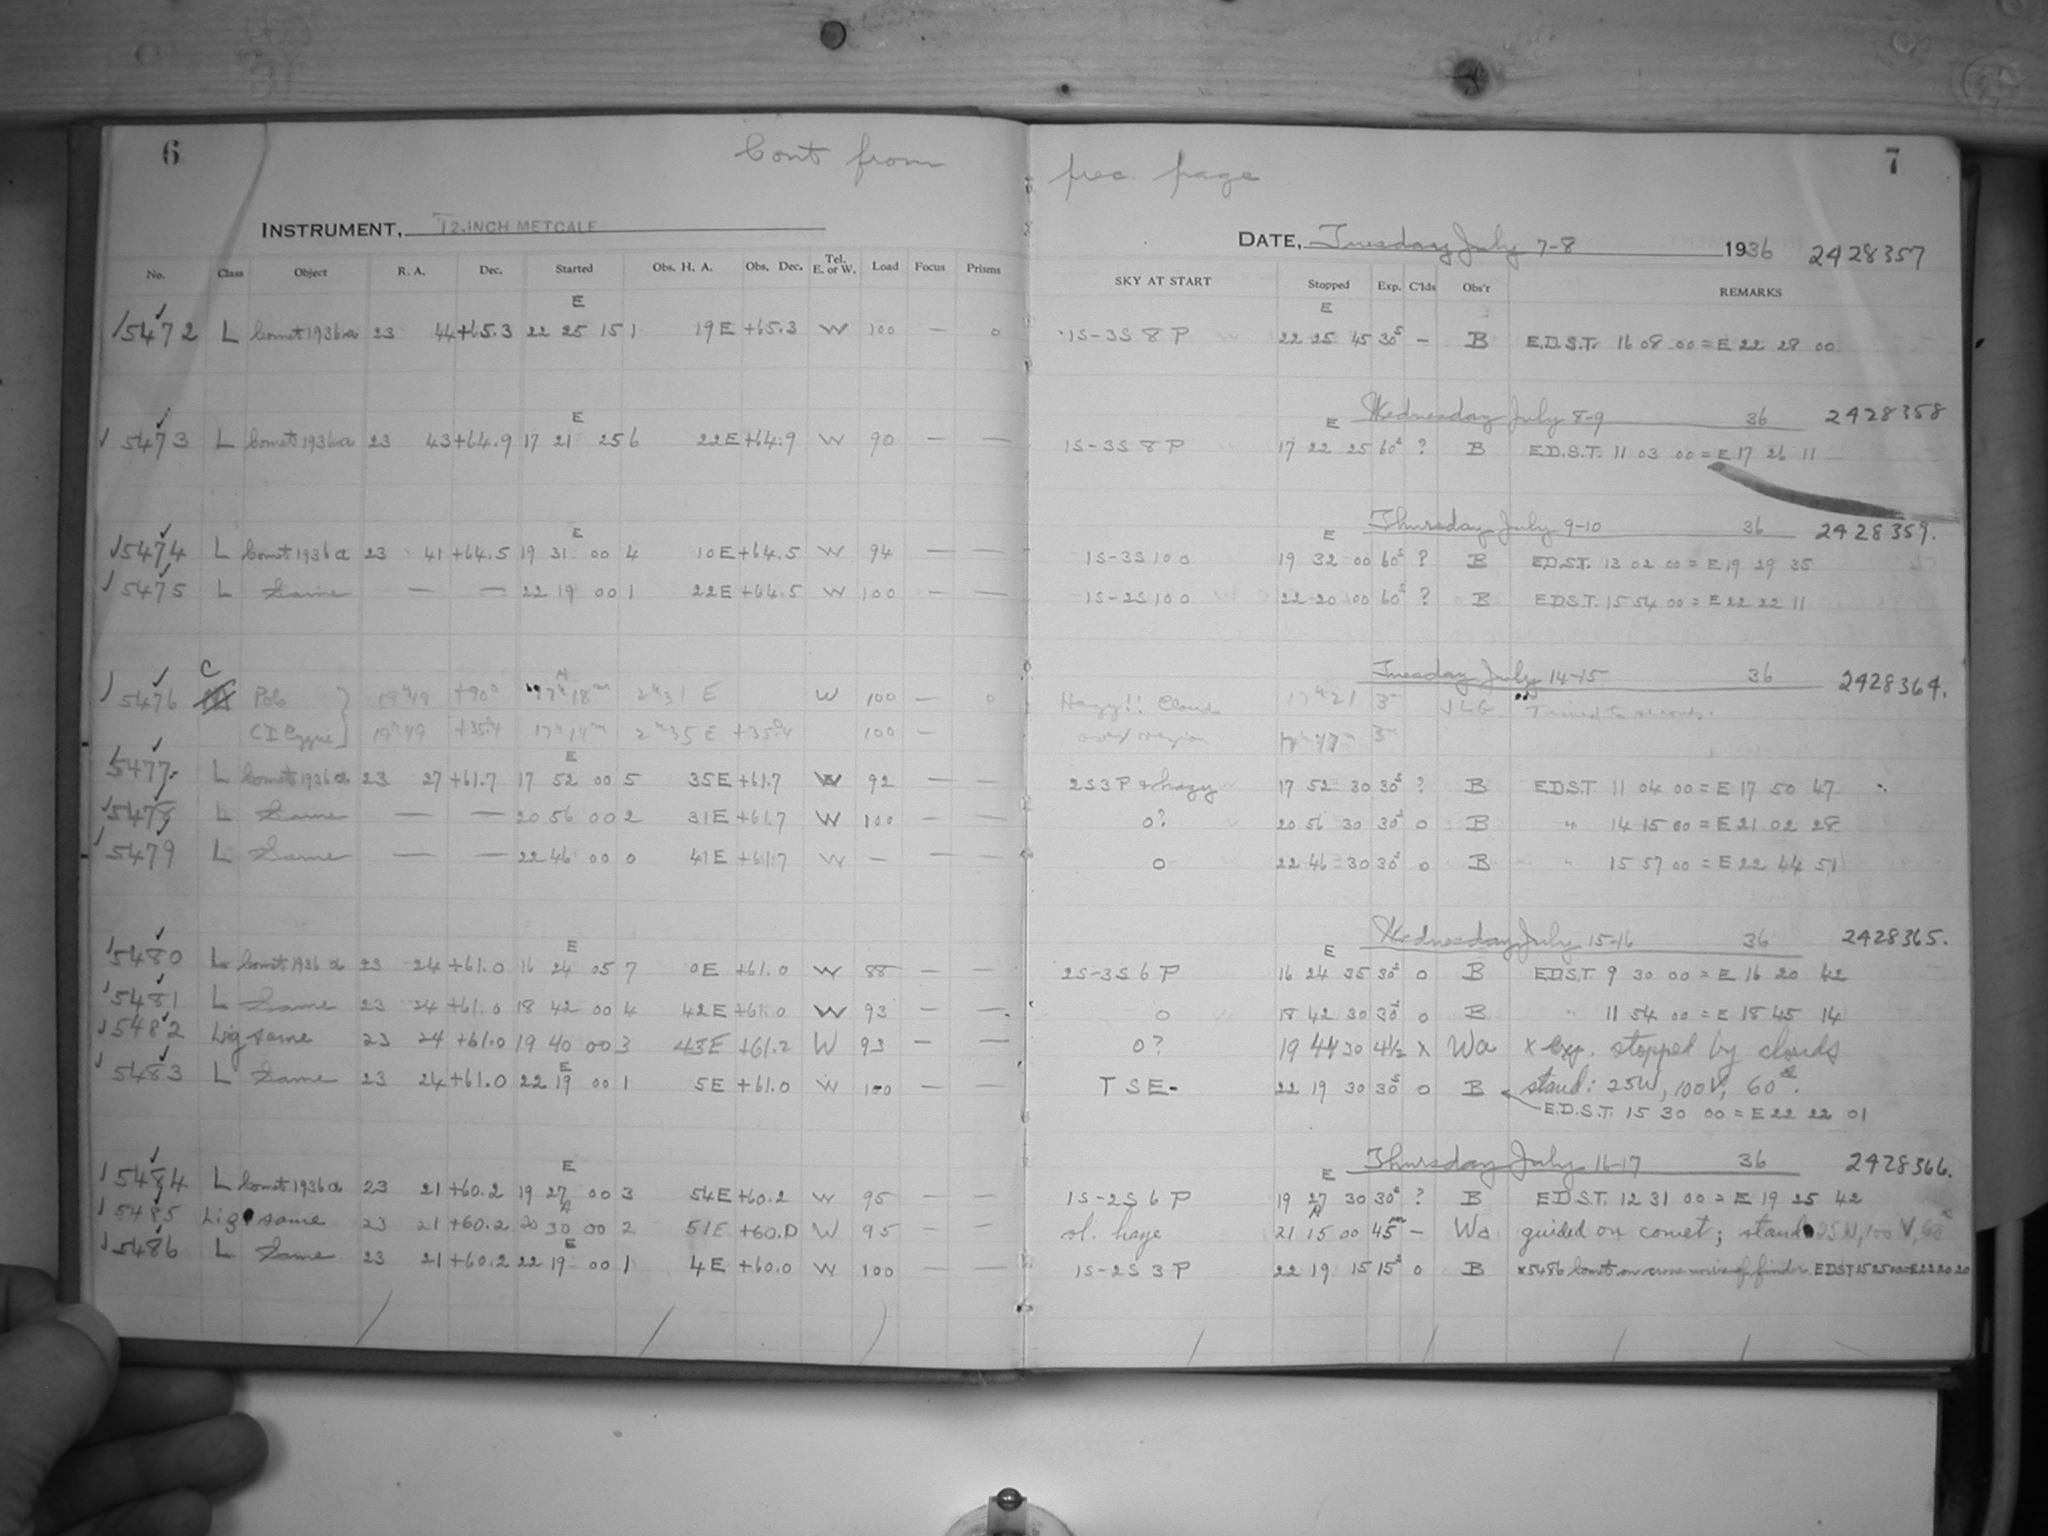 6
Cont from
prec. page
7
INSTRUMENT, 12-INCH METCALF
DATE, Tuesday July 7-8 1936 2428357
No. Class Object R. A. Dec. Started Obs. H. A. Obs. Dec. Tel. E. or W. Load Focus Prisms SKY AT START Stopped Exp. C'lds Obs'r REMARKS
E E
5472 L Comet 1936a 23 44 +65.3 22 25 15 1 19E +65.3 W 100 — 0 1S-3S 8 P 22 25 45 30s — B E.D.S.T. 16 08 00 = E 22 28 00
Wednesday July 8-9 36 2428358
E E
5473 L Comet 1936a 23 43 +64.9 17 21 25 6 22E +64.9 W 90 — — 1S-3S 8 P 17 22 25 60s ? B E.D.S.T. 11 03 00 = E 17 26 11
Thursday July 9-10 36 2428359.
E E
5474 L Comet 1936a 23 41 +64.5 19 31 00 4 10E +64.5 W 94 — — 1S-3S 10 0 19 32 00 60s ? B E.D.S.T. 13 02 00 = E 19 29 35
5475 L Same — — 22 19 00 1 22E +64.5 W 100 — — 1S-2S 10 0 22 20 00 60s ? B E.D.S.T. 15 54 00 = E 22 22 11
Tuesday July 14-15 36 2428364.
C A
5476 Pole 19h49 +90° 17h18m 2h31 E W 100 — 0 Hazy!! Cloud 17h21 3m JLG Trained to seconds.
CI Cygni 19h49 +35.4 17h14m 2h35 E +35.4 100 — over region 17h17m 3m
E
5477 L Comet 1936a 23 27 +61.7 17 52 00 5 35E +61.7 W 92 — — 2S3P + hazy 17 52 30 30s ? B EDST 11 04 00 = E 17 50 47
5478 L Same — — 20 56 00 2 31E +61.7 W 100 — — 0? 20 56 30 30s 0 B " 14 15 00 = E 21 02 28
5479 L Same — — 22 46 00 0 41E +61.7 W — — — 0 22 46 30 30s 0 B " 15 57 00 = E 22 44 51
Wednesday July 15-16 36 2428365.
E E
5480 L Comet 1936a 23 24 +61.0 16 24 05 7 0E +61.0 W 88 — — 2S-3S 6 P 16 24 35 30s 0 B EDST. 9 30 00 = E 16 20 42
5481 L Same 23 24 +61.0 18 42 00 4 42E +61.0 W 93 — — 0 18 42 30 30s 0 B " 11 54 00 = E 18 45 14
5482 Lig same 23 24 +61.0 19 40 00 3 43E +61.2 W 93 — — 0? 19 44 30 4½ x Wa x Exp. stopped by clouds
E
5483 L Same 23 24 +61.0 22 19 00 1 5E +61.0 W 100 — — T SE- 22 19 30 30s 0 B stand: 25W, 100V, 60s.
E.D.S.T. 15 30 00 = E 22 22 01
Thursday July 16-17 36 2428366.
E E
5484 L Comet 1936a 23 21 +60.2 19 27 00 3 54E +60.2 W 95 — — 1S-2S 6 P 19 27 30 30s ? B EDST. 12 31 00 = E 19 25 42
A A
5485 Lig same 23 21 +60.2 20 30 00 2 51E +60.0 W 95 — — sl. haze 21 15 00 45m — Wa guided on comet; stand 25W, 100 V, 60s
E
5486 L Same 23 21 +60.2 22 19 00 1 4E +60.0 W 100 — — 1S-2S 3 P 22 19 15 15s 0 B x5486 Comet on cross wires of finder. EDST 15 25 00 = E 22 20 20